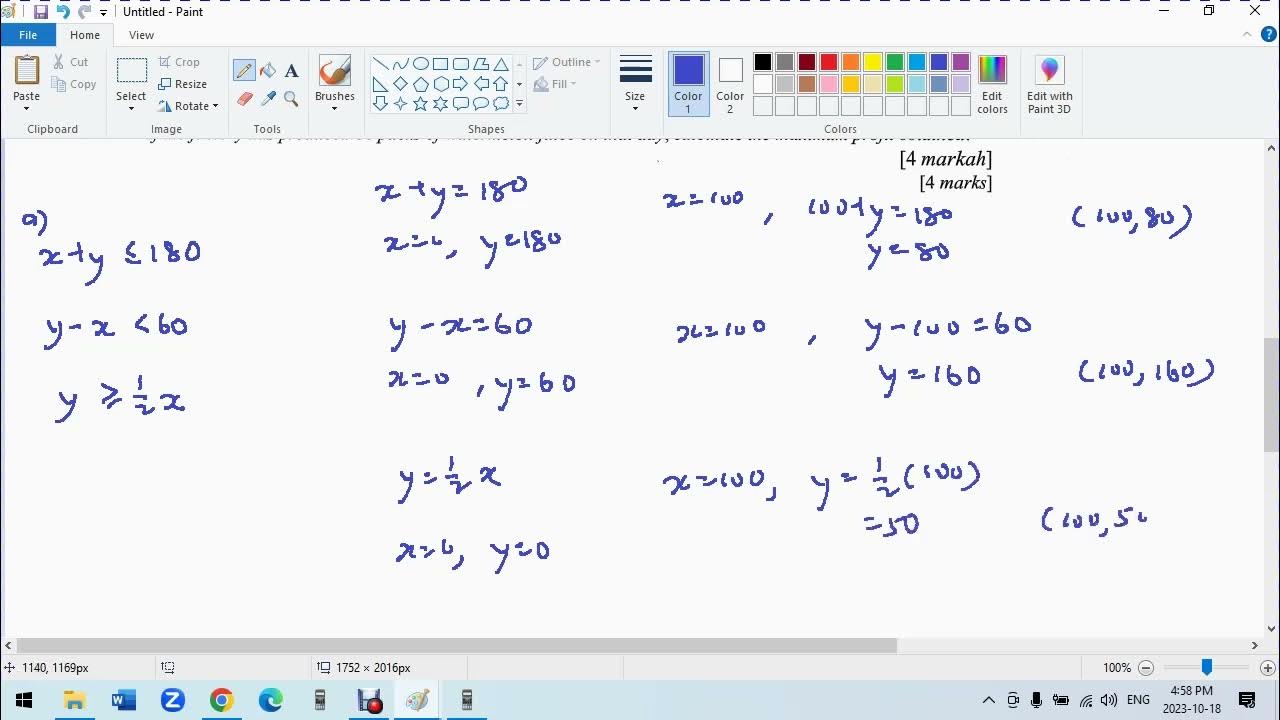 Untitled - Paint
File Home View
Paste Cut Copy Clipboard
Select Crop Resize Rotate Image
Tools
Brushes
Shapes
Outline Fill
Size
Color 1 Color 2
Edit colors
Colors
Edit with Paint 3D
[4 markah]
[4 marks]
a)
x+y ≤ 180
y - x < 60
y ≥ 1/2 x
x+y = 180
x=0, y=180
x=100, 100+y=180
y=80
(100,80)
y - x = 60
x=0, y=60
x=100, y-100=60
y=160
(100,160)
y = 1/2 x
x=0, y=0
x=100, y = 1/2 (100)
=50
(100,5
1140, 1169px
1752 × 2016px
100%
ENG
4:58 PM
2023-10-18